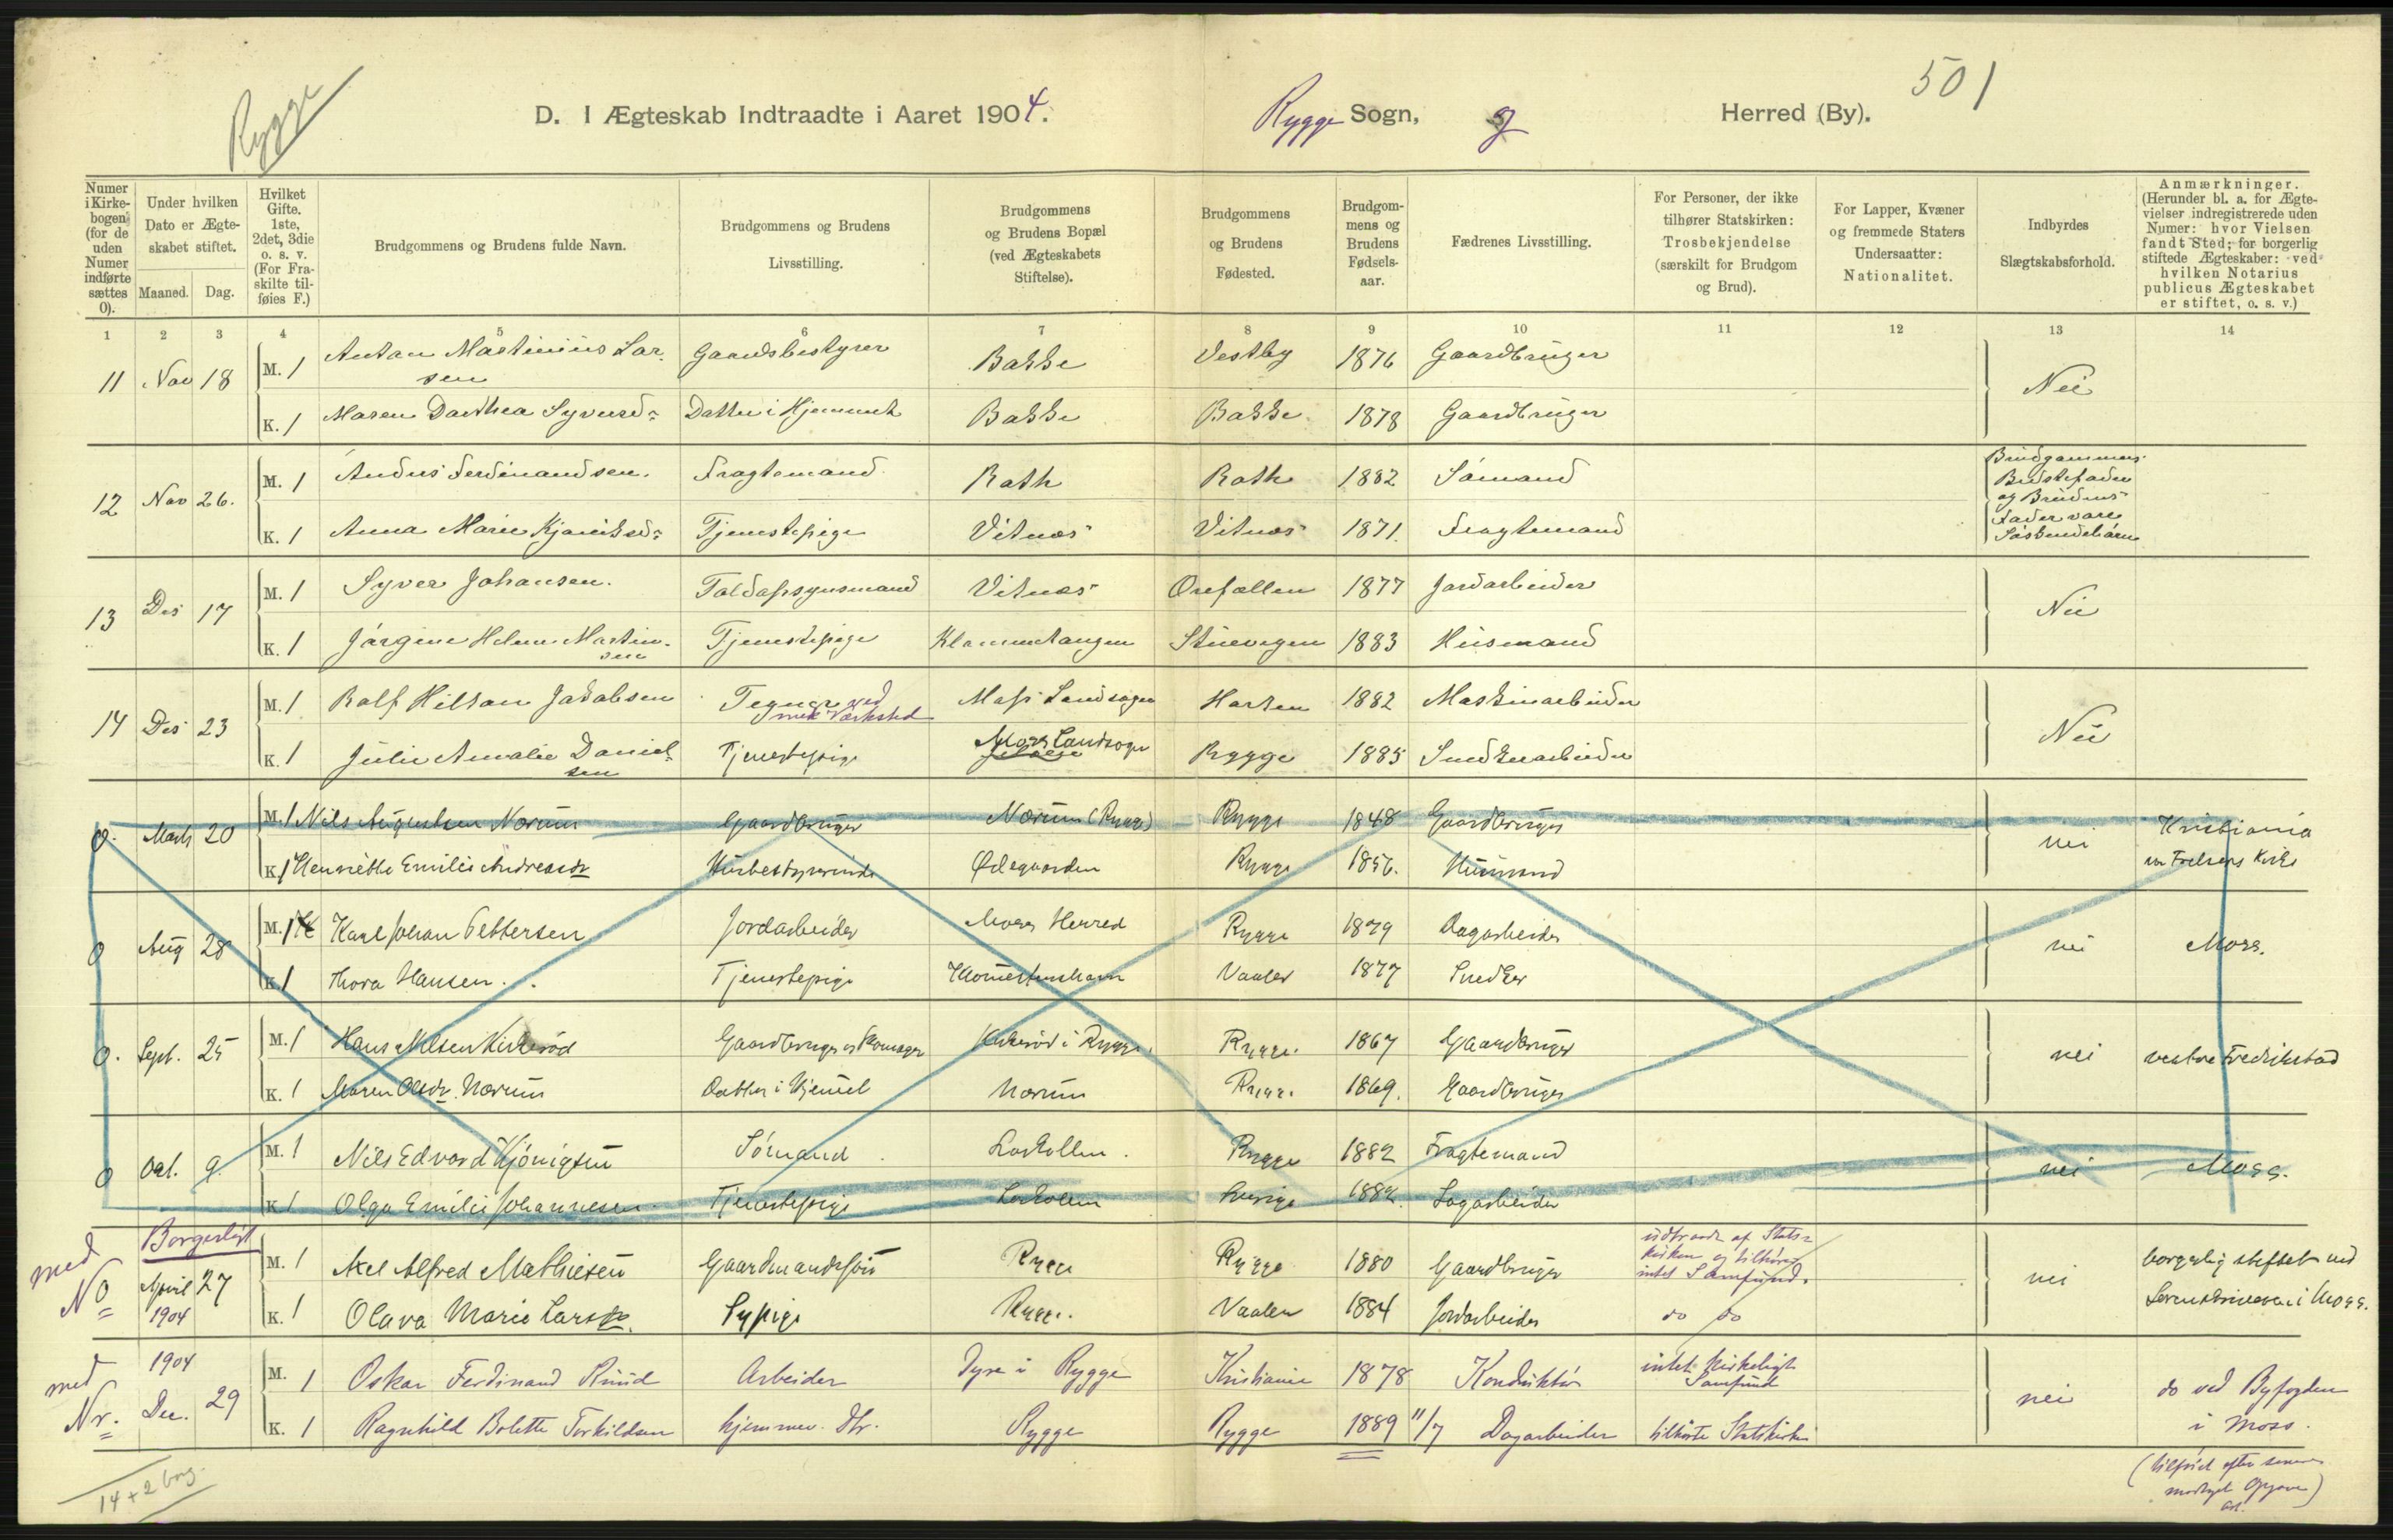 Rygge
501
D. I Ægteskab Indtraadte i Aaret 1904. Rygge Sogn, Herred (By).
Numer i Kirkebogen (for de uden Numer indførte sættes 0).
Under hvilken Dato er Ægteskabet stiftet.
Maaned. Dag.
Hvilket Gifte. 1ste, 2det, 3die o. s. v. (For Fraskilte tilføies F.)
Brudgommens og Brudens fulde Navn.
Brudgommens og Brudens Livsstilling.
Brudgommens og Brudens Bopæl (ved Ægteskabets Stiftelse).
Brudgommens og Brudens Fødested.
Brudgommens og Brudens Fødselsaar.
Fædrenes Livsstilling.
For Personer, der ikke tilhører Statskirken: Trosbekjendelse (særskilt for Brudgom og Brud).
For Lapper, Kvæner og fremmede Staters Undersaatter: Nationalitet.
Indbyrdes Slægtskabsforhold.
Anmærkninger. (Herunder bl. a. for Ægtevielser indregistrerede uden Numer: hvor Vielsen fandt Sted; for borgerlig stiftede Ægteskaber: ved hvilken Notarius publicus Ægteskabet er stiftet, o. s. v.)
1 2 3 4 5 6 7 8 9 10 11 12 13 14
11 Nov 18 M. 1 Anton Martinius Larsen Gaardsbestyrer Bakke Vestby 1876 Gaardbruger Nei
K. 1 Maren Dorthea Syversd: Datter i Hjemmet Bakke Bakke 1878 Gaardbruger
12 Nov 26. M. 1 Anders Ferdinandsen. Fragtemand Roth Roth 1882 Sómand Brudgommens Bedstefader og Brudens Fader vare Sóskendebórn
K. 1 Anna Marie Tjenestepige Vitnæs Vitnæs 1871. Fragtemand
13 Des 17 M. 1 Syver Johansen. Toldopsynsmand Vitnæs Orefallen 1877 Jordarbeider Nei
K. 1 Jórgine Helene Martinsen Tjenestepige 1883 Husmand
14 Des 23 M. 1 Rolf Hilton Jakobsen Tegner ved mek Værksted Moss Landsogn Horten 1882 Maskinarbeider Nei
K. 1 Julie Amalie Danielsen Tjenestepige Moss Landsogn Rygge 1885 Snedkerarbeider
0. Marts 20 M. 1 Nils Augustsen Norum Gaardbruger Norum (Rygge) Rygge 1848 Gaardbruger nei Kristiania vor Frelsers Kirke
K. 1 Henriette Emilie Andreasdr Husbestyrerinde Ødegaarden Rygge 1856. Husmand
0 Aug 28 M. 1 Karl Johan Pettersen Jordarbeider Moss Herred Rygge 1879 Dagarbeider nei Moss.
K. 1 Thora Hansen. Tjenestepige Vaaler 1877 Snedker
0. Sept. 25 M. 1 Hans Nilsen Kirkeród Gaardbruger og Skomager Kirkeród i Rygge. Rygge. 1867 Gaardbruger nei vestre Fredrikstad
K. 1 Maren Olsdr. Norum Datter i Hjemmet Norum Rygge. 1869. Gaardbruger
0 Oct. 9. M. 1 Nils Edvard Kjónigsen Sómand Larkollen. Rygge 1882 Fragtemand nei Moss.
K. 1 Olga Emilie Johannesen Tjenestepige Larkollen Sverige 1882. Sagarbeider
Borgerligt
med No April 27 1904 M. 1 Axel Alfred Mathiesen Gaardmandssón Rygge Rygge 1880 Gaardbruger udtraadt af Statskirken og tilhórer intet Samfund. nei borgerlig stiftet ved Sorenskriveren i Moss.
K. 1 Olava Marie Larsdr. Sypige Rygge. Vaaler 1884 Jordarbeider do do
med Nr. 1904 Dec. 29 M. 1 Oskar Ferdinand Ruud Arbeider Dyre i Rygge Kristiania 1878 Konduktór intet kirkeligt Samfund nei do ved Byfogden i Moss.
K. 1 Ragnhild Bolette Torkildsen hjemmev. Dtr. Rygge Rygge 1889 11/7 Dagarbeider tilhórte Statskirken
14 + 2 borg.
(tilfóiet efter senere modtagt Opgave)